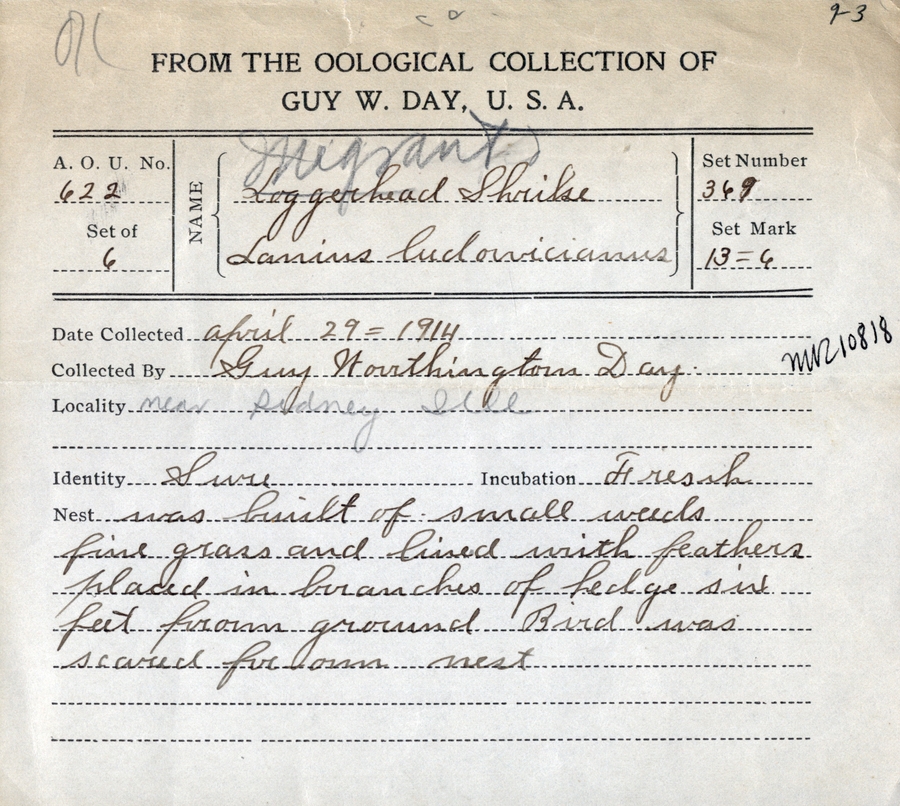 9-3
FROM THE OOLOGICAL COLLECTION OF
GUY W. DAY, U. S. A.
A. O. U. No.
622
Set of
6
NAME
Migrant
Loggerhead Shrike
Lanius ludovicianus
Set Number
369
Set Mark
13=6
Date Collected april 29 = 1914
Collected By Guy Worthington Day.
MVZ 10818
Locality near Sidney Ills
Identity Sure Incubation Fresh
Nest was built of small weeds
fine grass and lined with feathers
placed in branches of hedge six
feet from ground Bird was
scared from nest